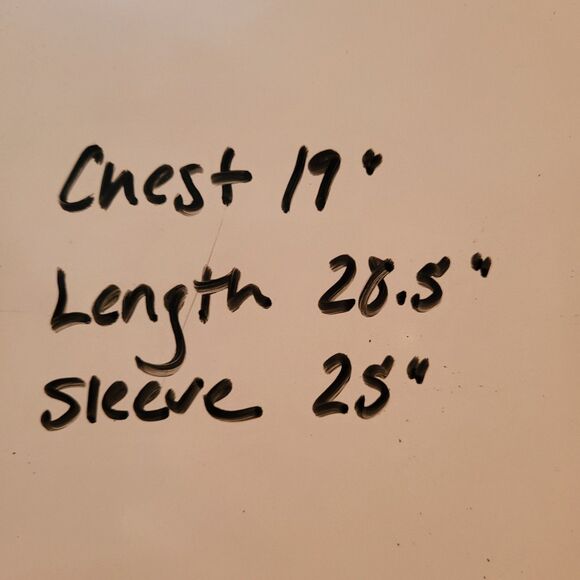 Chest 19"
Length 28.5"
Sleeve 25"